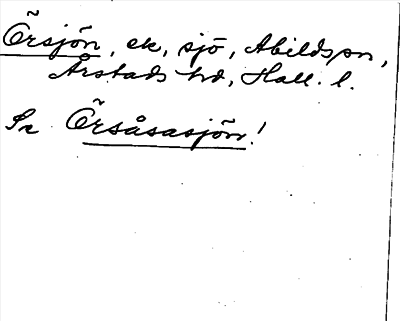 Örsjön, ek, sjö, Abilds sn,
Årstads hd, Hall. l.
Se Örsåsasjön!